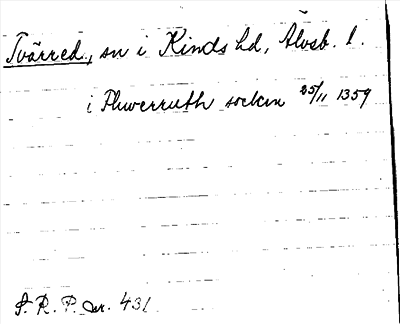 Tvärred, sn i Kinds hd, Älvsb. l.
i Thwerruth socken 25/11 1359
S. R. P. nr. 431